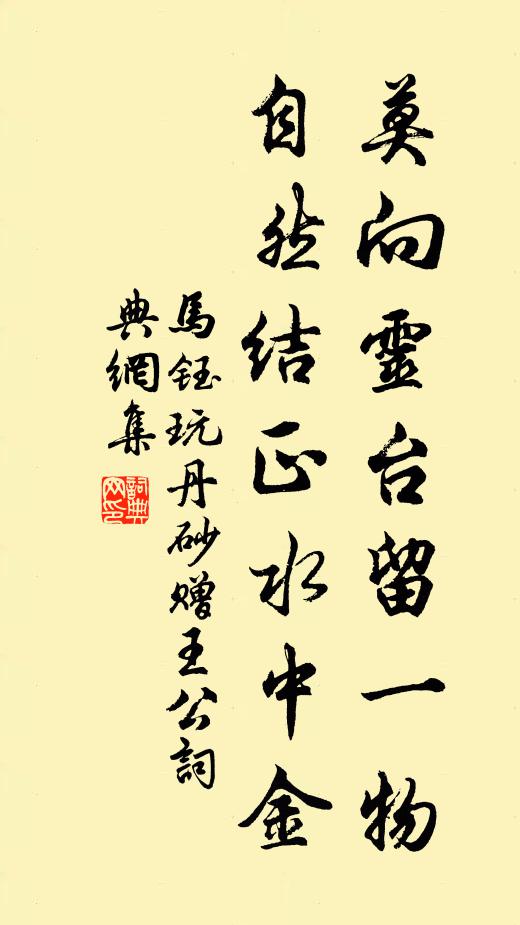 莫向靈台留一物
自然结正水中金
馬鈺玩丹砂赠王公詞
典網集
詞典網印